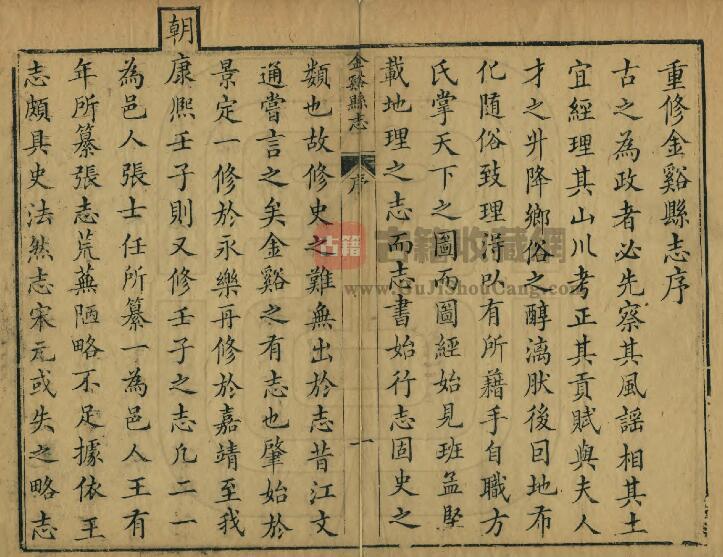 重修金谿縣志序
古之為政者必先察其風謡相其土
宜經理其山川考正其貢賦與夫人
才之升降鄉俗之醇漓肰後因地布
化随俗致理得以有所藉手自職方
氏掌天下之圖而圖經始見班孟堅
載地理之志而志書始行志固史之
金谿縣志
序
一
類也故修史之難無出於志昔江文
通嘗言之矣金谿之有志也肇始於
景定一修於永樂再修於嘉靖至我
朝康熙壬子則又修壬子之志凡二一
為邑人張士任所纂一為邑人王有
年所纂張志荒蕪陋略不足據依王
志頗具史法然志宋元或失之略志
古籍
古籍收藏網
www.GuJiShouCang.com